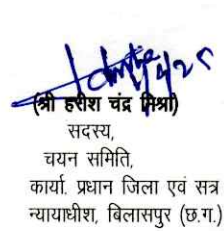 (श्री हरीश चंद्र मिश्रा)
सदस्य,
चयन समिति,
कार्या. प्रधान जिला एवं सत्र
न्यायाधीश, बिलासपुर (छ.ग.)